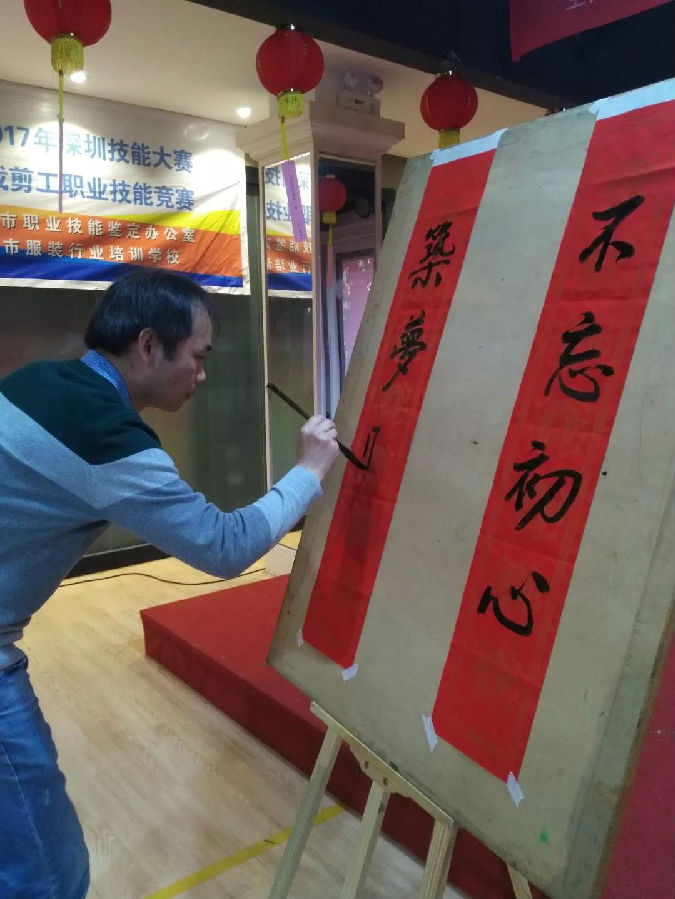 017年深圳技能大赛
裁剪工职业技能竞赛
市职业技能鉴定办公室
市服装行业培训学校
不忘初心
築夢